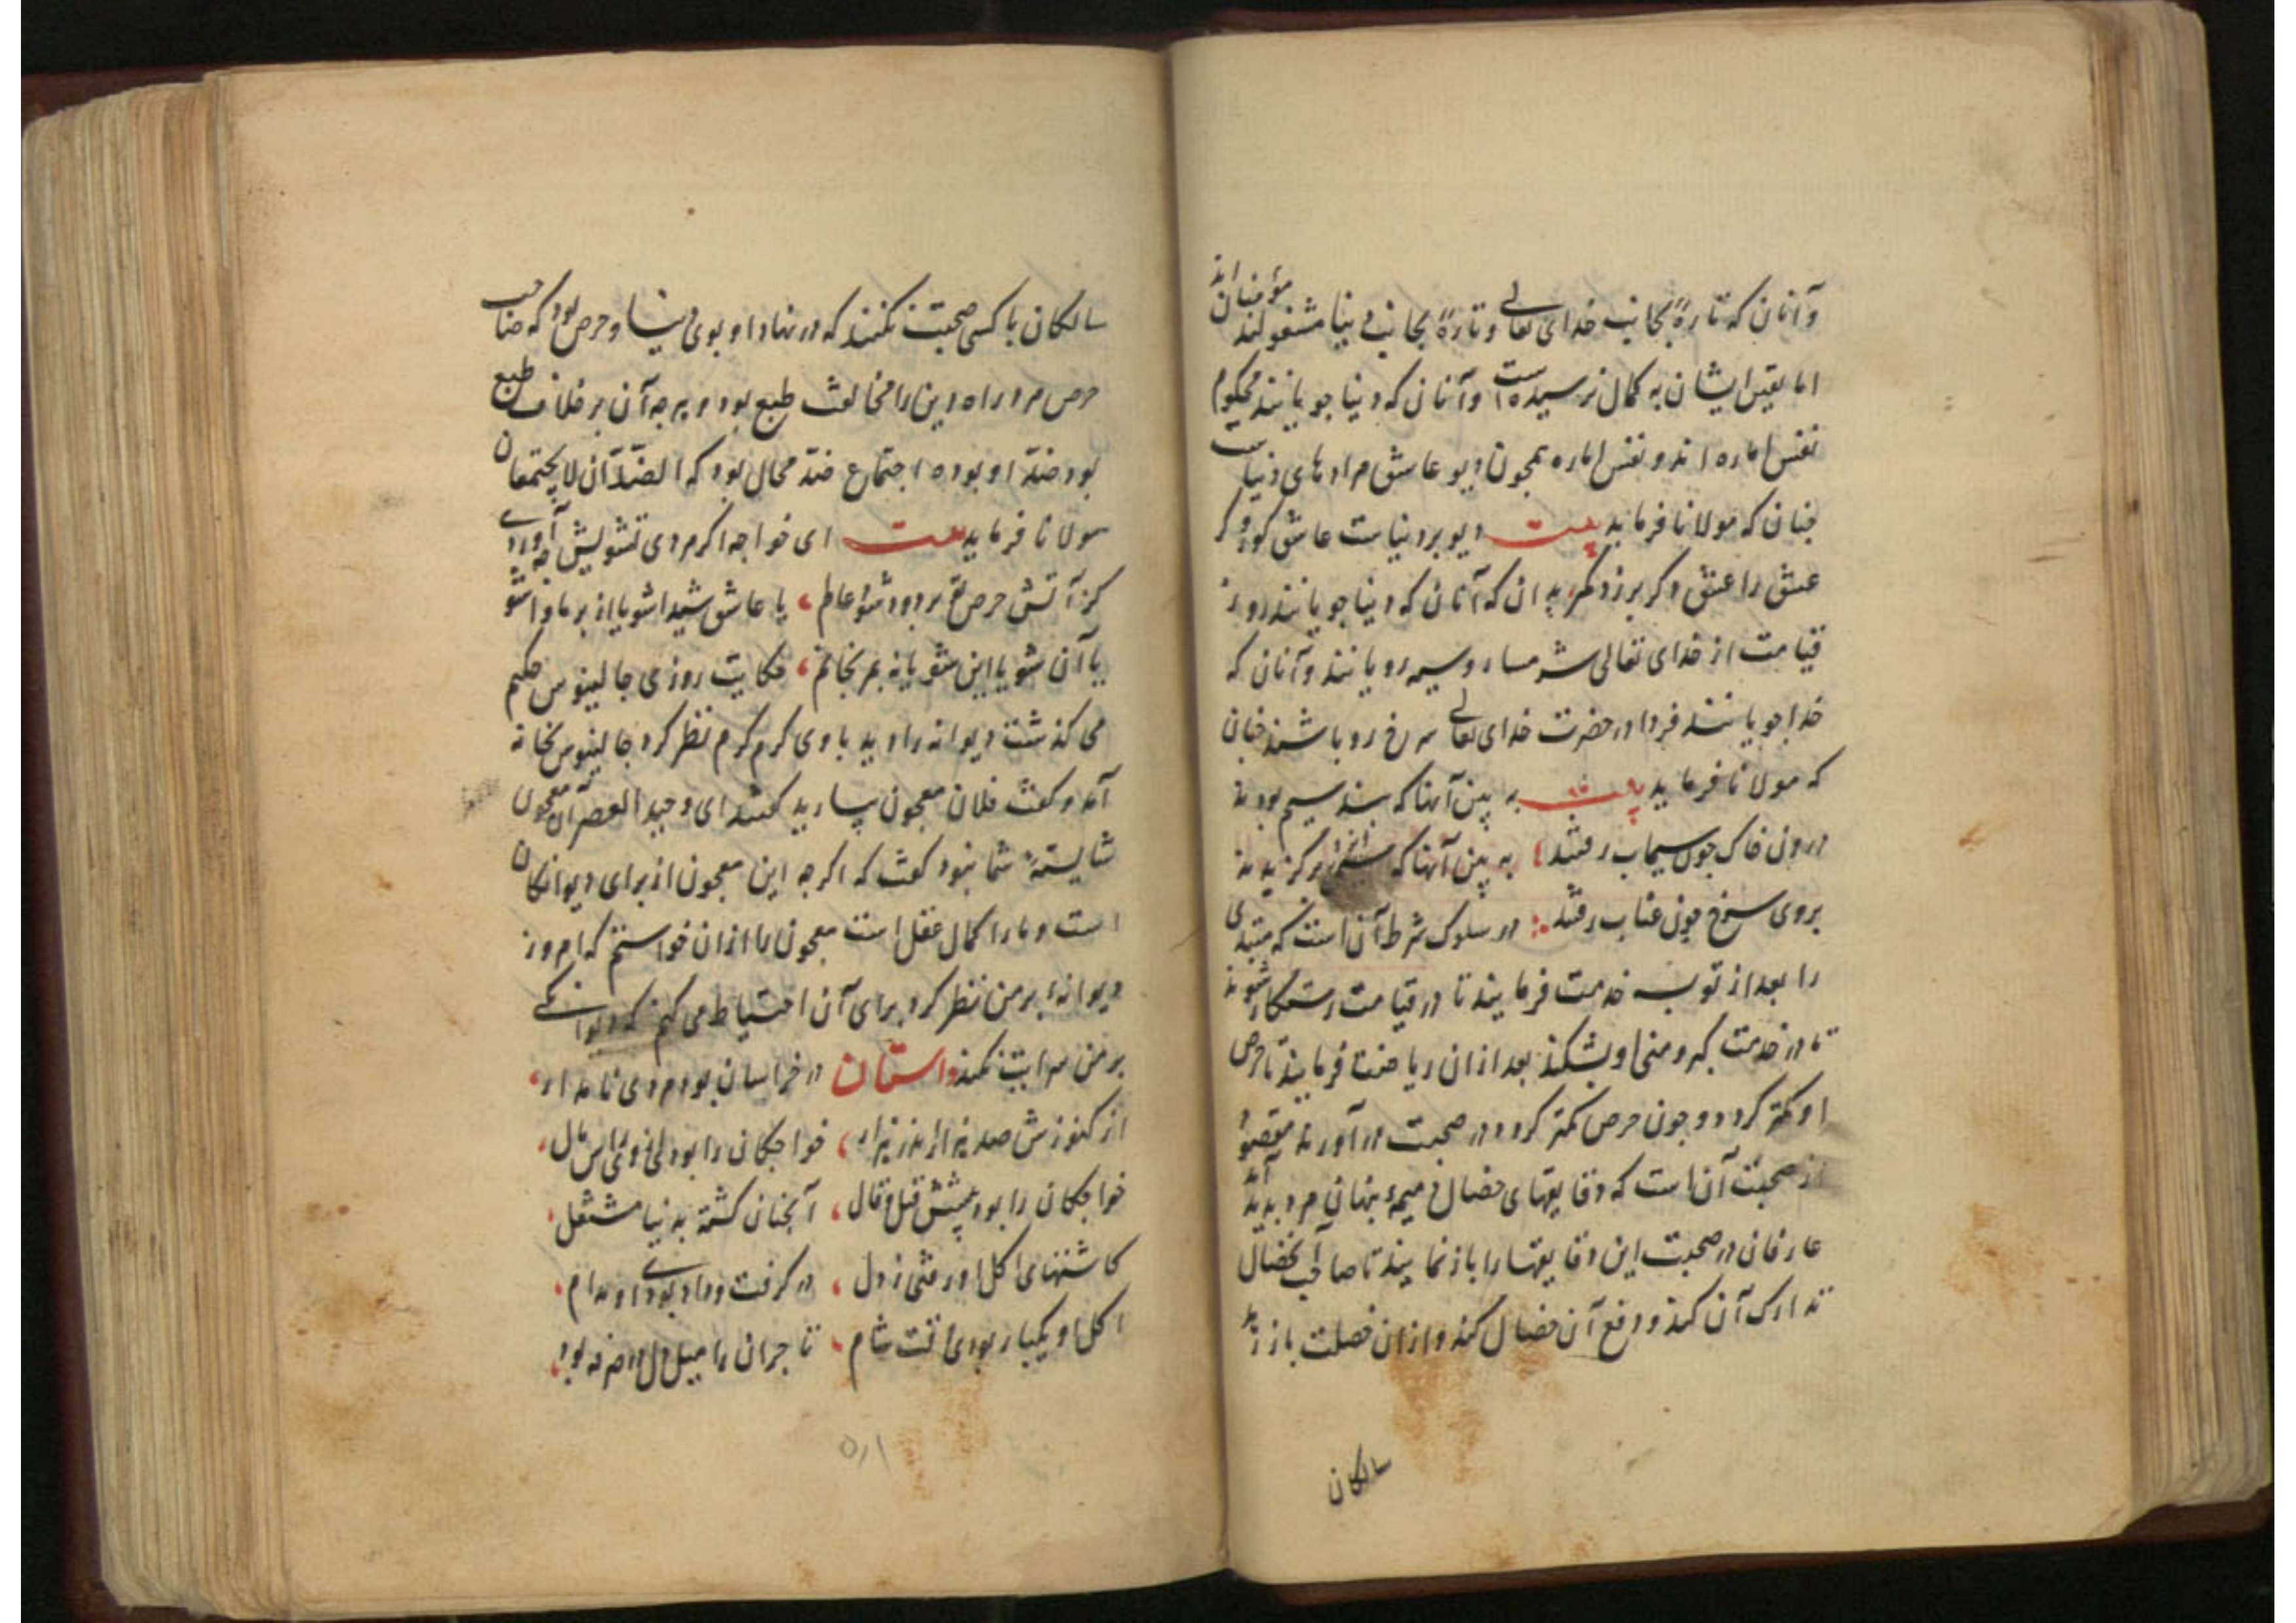 وآنان که تارهٔ بجانب خدای تعالی وتارهٔ بجانب دینا مشغولند مؤمنان اند
اما یقین ایشان به کمال نرسیده است وآنان که دینا جویانند محکوم
نفس اماره اند و نفس اماره همجون دیو عاشق مرادهای دنیاست
جنان که مولانا فرماید بیت دیو بر دنیاست عاشق کور و کر
عشق را عشق دکر برد مکر بدان که آنان که دینا جویانند روز
قیامت از خدای تعالی شرمسار وسیه رویانند وآنان که
خدا جویانند فردا در حضرت خدای تعالی سرخ رو باشند جنان
که مولانا فرماید بیت به بین آنها که بند سیم بودند
درون خاک جون سیماب رفتند به بین آنها که برکزیدند
بروی سرخ جون عناب رفتند در سلوک شرط آن است که مبتدی
را بعد از توبه خدمت فرمایند تا در قیامت رستکار شوند
تا در خدمت کبر ومنی او بشکند بعد ازان ریاضت فرمایند تا حرص
او کمتر کردد وجون حرص کمتر کردد در صحبت درآورند مقصود
از صحبت آن است که دقایقهای خصال ذمیمهٔ بنهان مرد بدید آید
عارفان در صحبت این دقایقها را باز نمایند تا صاحب آن خصال
تدارک آن کند ودفع آن خصال کند وازان خصلت باز
سالکان
سالکان با کسی صحبت نکنند که در نهاد او بوی دینا وحرص بود که صاحب
حرص مرد راه دین را مخالف طبع بود وهرجه آن بر خلاف طبع
بود ضد او بود واجتماع ضد محال بود که الضدّان لا یجتمعان
مولانا فرماید بیت ای خواجه اکر مردی تشویش جه آوردی
کز آتش حرص تو بر دود شوا عاطم یا عاشق شیدا شو یا از بر ما واشو
یا آن شو یا این شو یا نه بخانم حکایت روزی جالینوس حکیم
می کذشت دیوانه را دید با وی کرم کرم نظر کرد جالینوس بخانه
آمد وکفت فلان معجون بیارید کفتند ای وحید العصر آن معجون
شایستهٔ شما نبود کفت که اکرجه این معجون از برای دیوانکان
است ومارا کمال عقل است معجون را ازان خواستم که امروز
دیوانهٔ بر من نظر کرد برای آن احتیاط می کنم که دیوانکی
بر من سرایت نکند داستان در خراسان بود مردی نامدار
از کنوزش صد هزار اندر هزار خواجکان را بود ازوی راس مال
خواجکان را بود بیشش قیل وقال آنجنان کشته بدنیا مشتغل
کاشتهای اکل او رفتی ز دل در کرفت وداد بودی او مدام
اکل او یکبار بودی وقت شام تاجران را میل دل در صرفه بود
۵۱